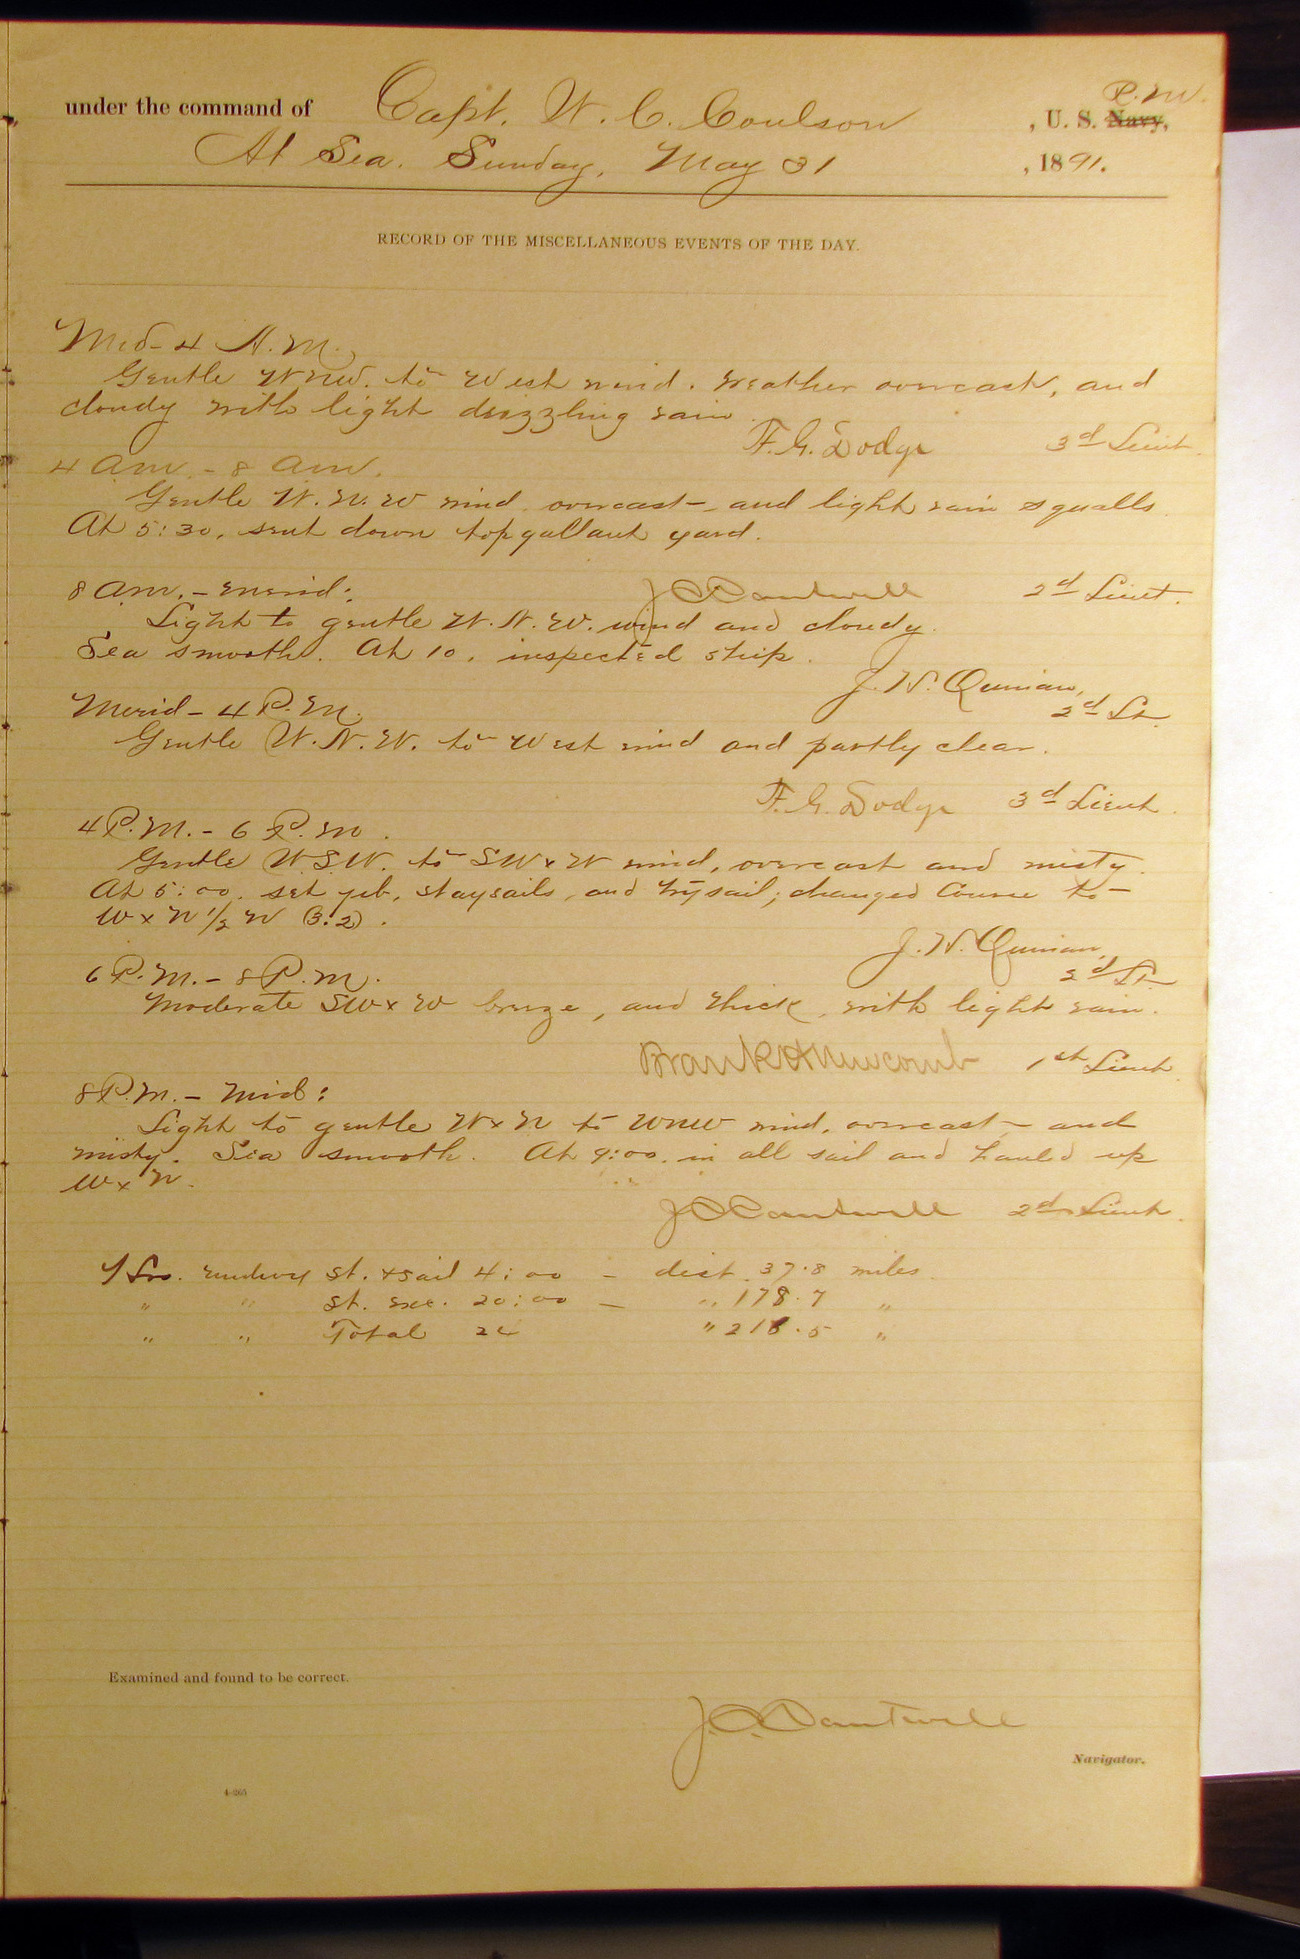 under the command of Capt. W. C. Coulson, U. S. Navy, R. M.
At Sea. Sunday, May 31, 1891.
RECORD OF THE MISCELLANEOUS EVENTS OF THE DAY.
Mid - 4 A.M.
Gentle WNW. to West wind. Weather overcast, and
cloudy with light drizzling rain.
F. G. Dodge 3d Lieut.
4 am. - 8 am.
Gentle W.N.W wind overcast - and light rain squalls.
At 5:30, sent down topgallant yard.
J C Cantwell 2d Lieut.
8 am. - merid:
Light to gentle W.N.W. wind and cloudy.
Sea smooth. At 10, inspected ship.
J. W. Quinan,
2d Lt.
Merid - 4 P.M.
Gentle W.N.W. to West wind and partly clear.
F. G. Dodge 3d Lieut.
4 P.M. - 6 P.M.
Gentle W.S.W. to SWxW wind, overcast and misty.
At 5:00, set jib, staysails, and trysail; changed course to -
W x N 1/2 N (3:2).
J. W. Quinan,
2d Lt.
6 P.M. - 8 P.M.
Moderate SWxW breeze, and thick, with light rain.
Frank H Newcomb 1st Lieut.
8 P.M. - Mid:
Light to gentle WxN to WNW wind, overcast - and
misty. Sea smooth. At 9:00, in all sail and hauled up
W x N.
J C Cantwell 2d Lieut.
Hrs. underway St. & sail 4:00 - dist. 37.8 miles.
" " St. exc. 20:00 - " 178.7 "
" " Total 24 " 216.5 "
Examined and found to be correct.
J. C. Cantwell
Navigator.
4-265